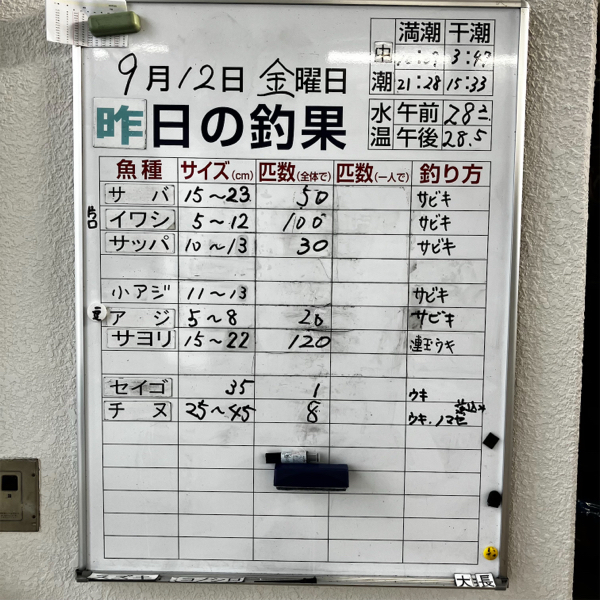 満潮 干潮
9月12日 金曜日
中潮 3:47
21:28 15:33
昨日の釣果
水温 午前 28.2
午後 28.5
魚種 サイズ(cm) 匹数(全体で) 匹数(一人で) 釣り方
サバ 15~23 50 サビキ
片口 イワシ 5~12 100 サビキ
サッパ 10~13 30 サビキ
小アジ 11~13 サビキ
アジ 5~8 20 サビキ
サヨリ 15~22 120 連玉ウキ
セイゴ 35 1 ウキ
チヌ 25~45 8 ウキ.ノマセ 落込み
大 長